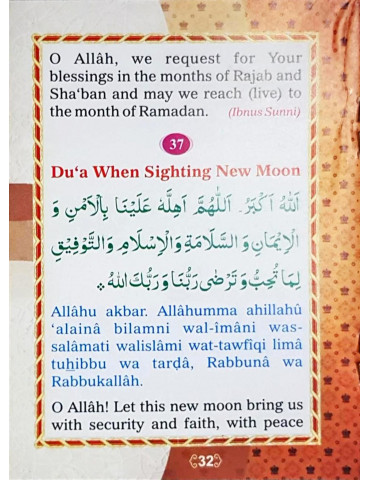 O Allâh, we request for Your
blessings in the months of Rajab and
Sha‘ban and may we reach (live) to
the month of Ramadan. (Ibnus Sunni)
37
Du‘a When Sighting New Moon
اَللّٰهُ اَكْبَرُ۔ اَللّٰهُمَّ اَهِلَّهٗ عَلَيْنَا بِالْاَمْنِ وَ
الْاِيْمَانِ وَ السَّلَامَةِ وَالْاِسْلَامِ وَ التَّوْفِيْقِ
لِمَا تُحِبُّ وَ تَرْضٰى رَبُّنَا وَ رَبُّكَ اللهُ
Allâhu akbar. Allâhumma ahillahû
‘alainâ bilamni wal-îmâni was-
salâmati walislâmi wat-tawfîqi limâ
tuhibbu wa tardâ, Rabbunâ wa
Rabbukallâh.
O Allâh! Let this new moon bring us
with security and faith, with peace
32